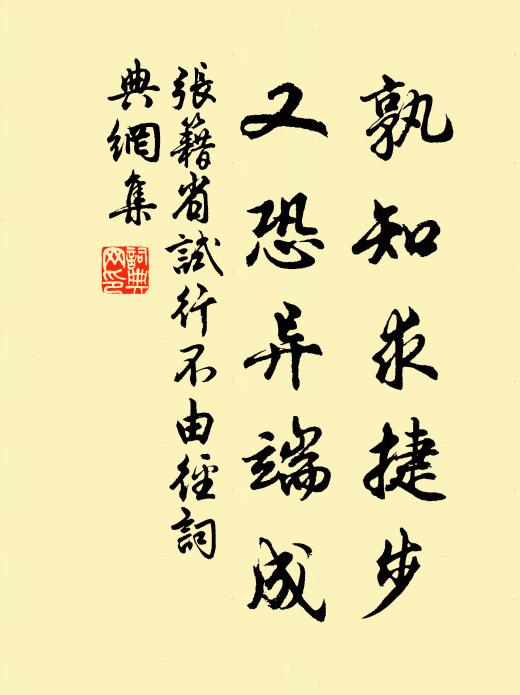 孰知求捷步
又恐异端成
張籍省試行不由徑詞
典網集
詞典
网印